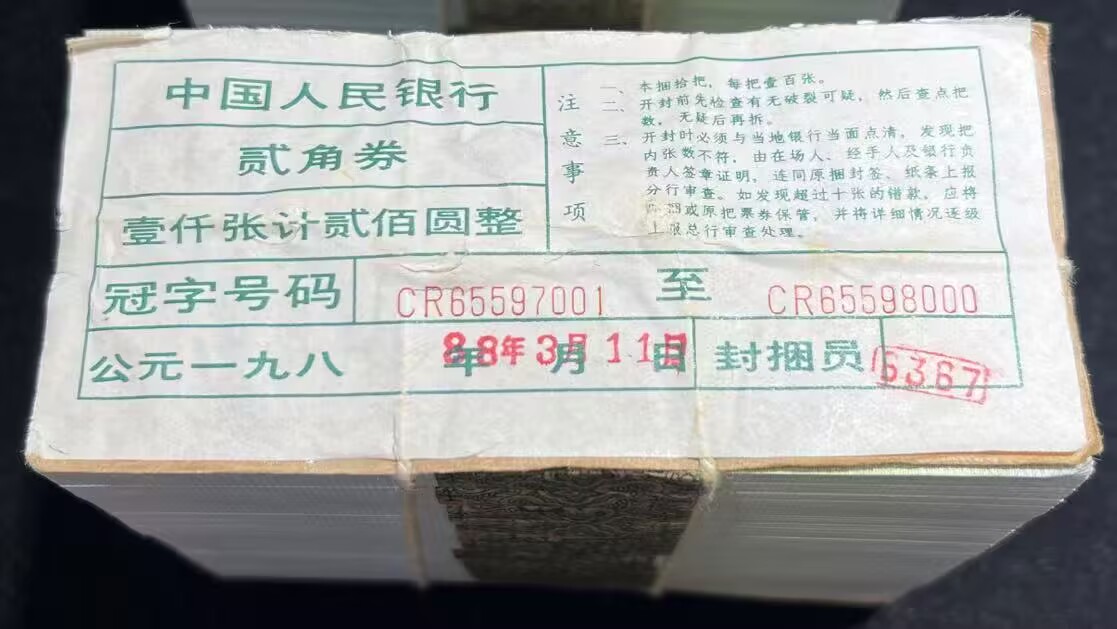 中国人民银行
贰角券
壹仟张计贰佰圆整
注意事项
一、本捆拾把，每把壹百张。
二、开封前先检查有无破裂可疑，然后查点把
数，无疑后再拆。
三、开封时必须与当地银行当面点清，发现把
内张数不符，由在场人、经手人及银行负
责人签章证明，连同原捆封签、纸条上报
分行审查。如发现超过十张的错款，应将
或原把票券保管，并将详细情况逐级
上报总行审查处理。
冠字号码 CR65597001 至 CR65598000
公元一九八 年 月 日 封捆员 6367
88年3月11日